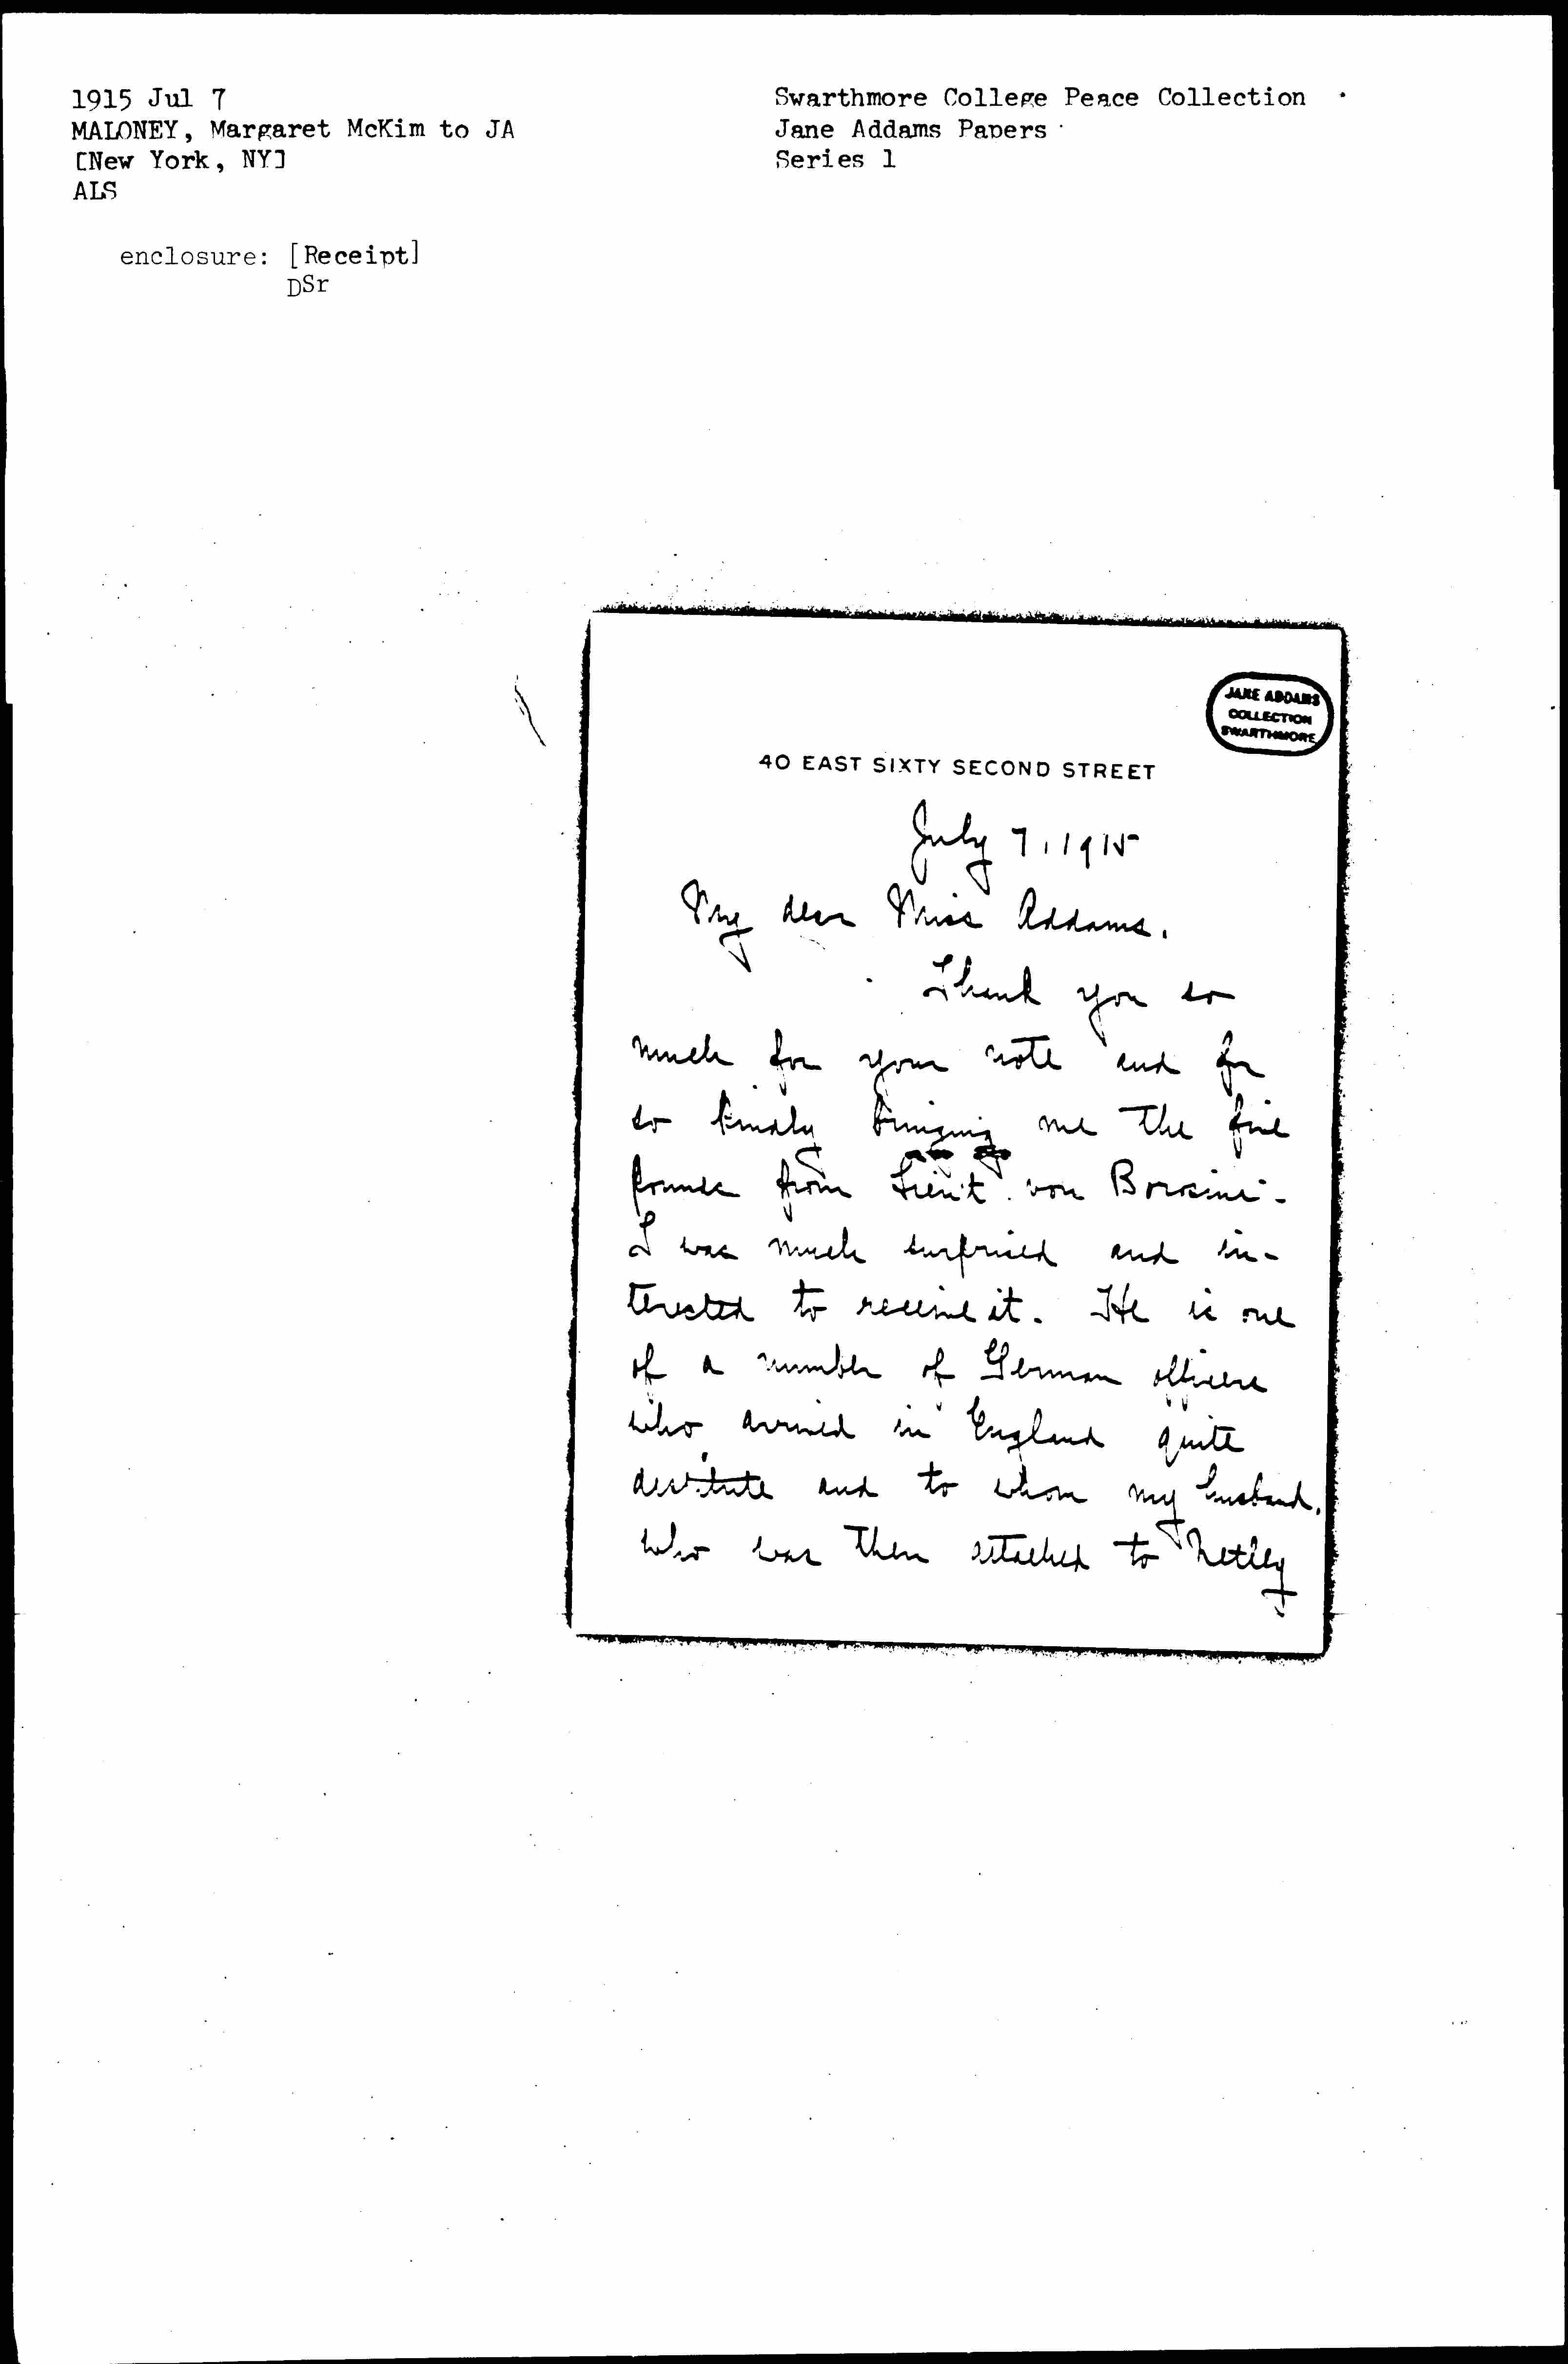 1915 Jul 7
MALONEY, Margaret McKim to JA
[New York, NY]
ALS
enclosure: [Receipt]
DSr
Swarthmore College Peace Collection
Jane Addams Papers
Series 1
JANE ADDAMS
COLLECTION
SWARTHMORE
40 EAST SIXTY SECOND STREET
July 7, 1915
My dear Miss Addams.
Thank you so
much for your note and for
so kindly bringing me the five
pounds from Lieut. von
I was much surprised and in-
terested to receive it. He is one
of a number of German officers
who arrived in England quite
destitute and to whom my husband,
who was then attached to Netley